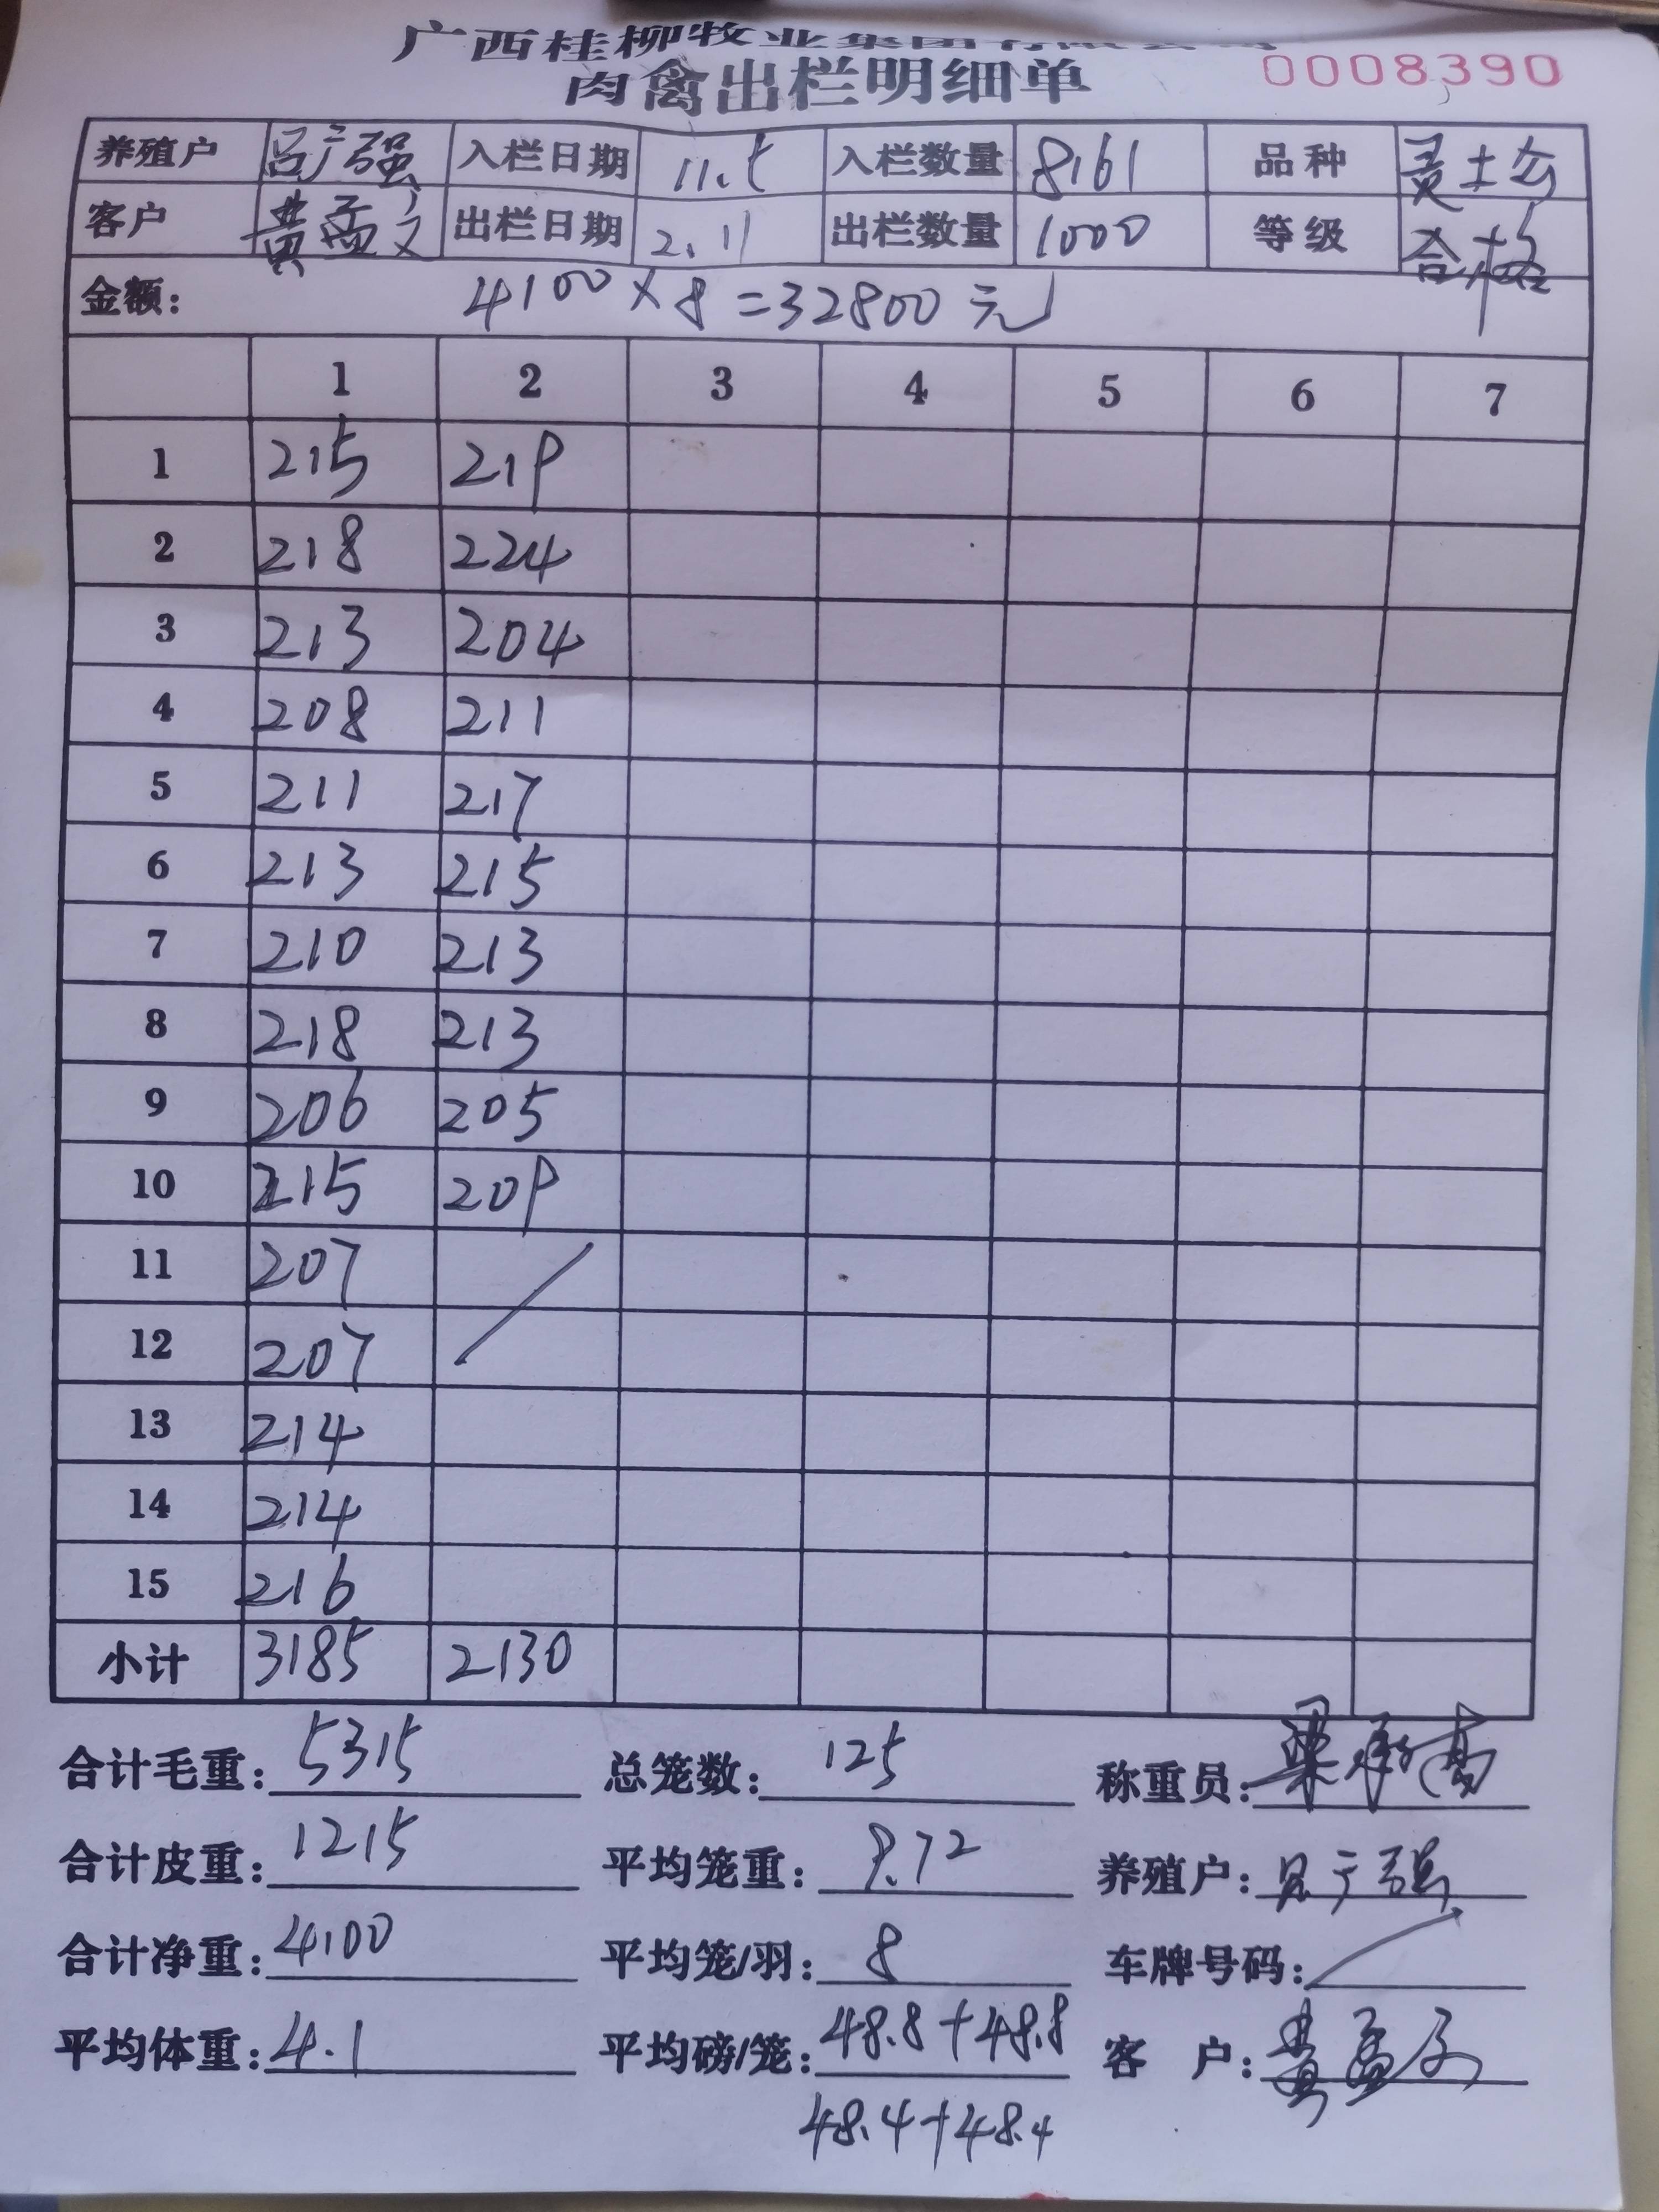 广西桂柳牧业集团有限公司
肉禽出栏明细单 0008390
养殖户 吕广强 入栏日期 11.5 入栏数量 8161 品种 灵土公
客户 黄孟文 出栏日期 2.11 出栏数量 1000 等级 合格
金额： 4100×8=32800元
1 2 3 4 5 6 7
1 215 219
2 218 224
3 213 204
4 208 211
5 211 217
6 213 215
7 210 213
8 218 213
9 206 205
10 215 209
11 207
12 207
13 214
14 214
15 216
小计 3185 2130
合计毛重： 5315 总笼数： 125 称重员：
合计皮重： 1215 平均笼重： 9.72 养殖户： 吕广强
合计净重： 4100 平均笼/羽： 8 车牌号码：
平均体重： 4.1 平均磅/笼： 48.8+48.8 客 户： 黄孟文
48.4+48.4